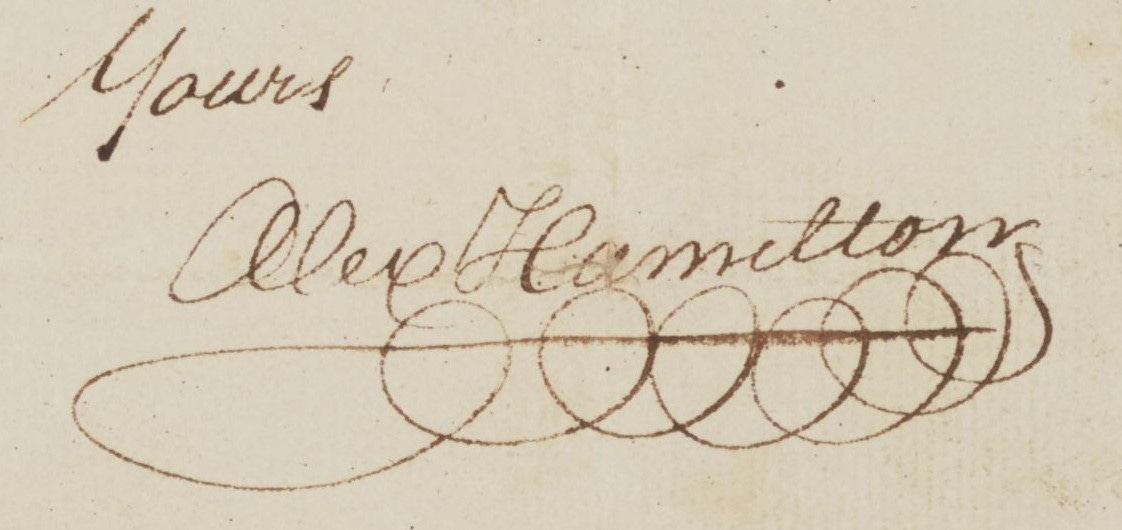 Yours
Alex Hamilton